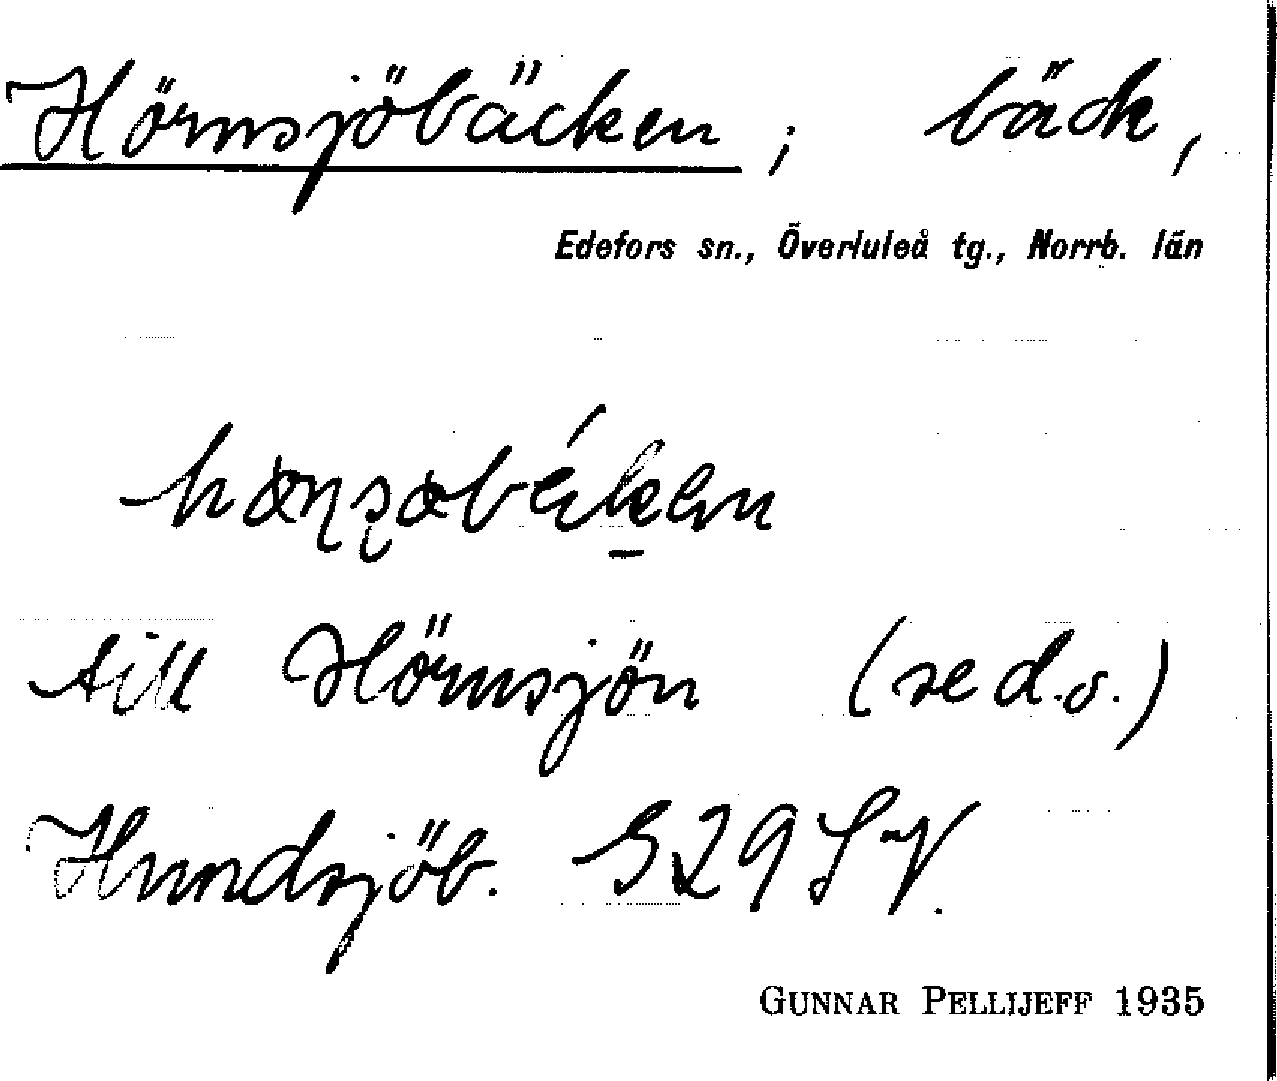 Hörnsjöbäcken ; bäck,
Edefors sn., Överluleå tg., Norrb. län
till Hörnsjön (se d.o.)
Hundsjöb. S29SV.
GUNNAR PELLIJEFF 1935